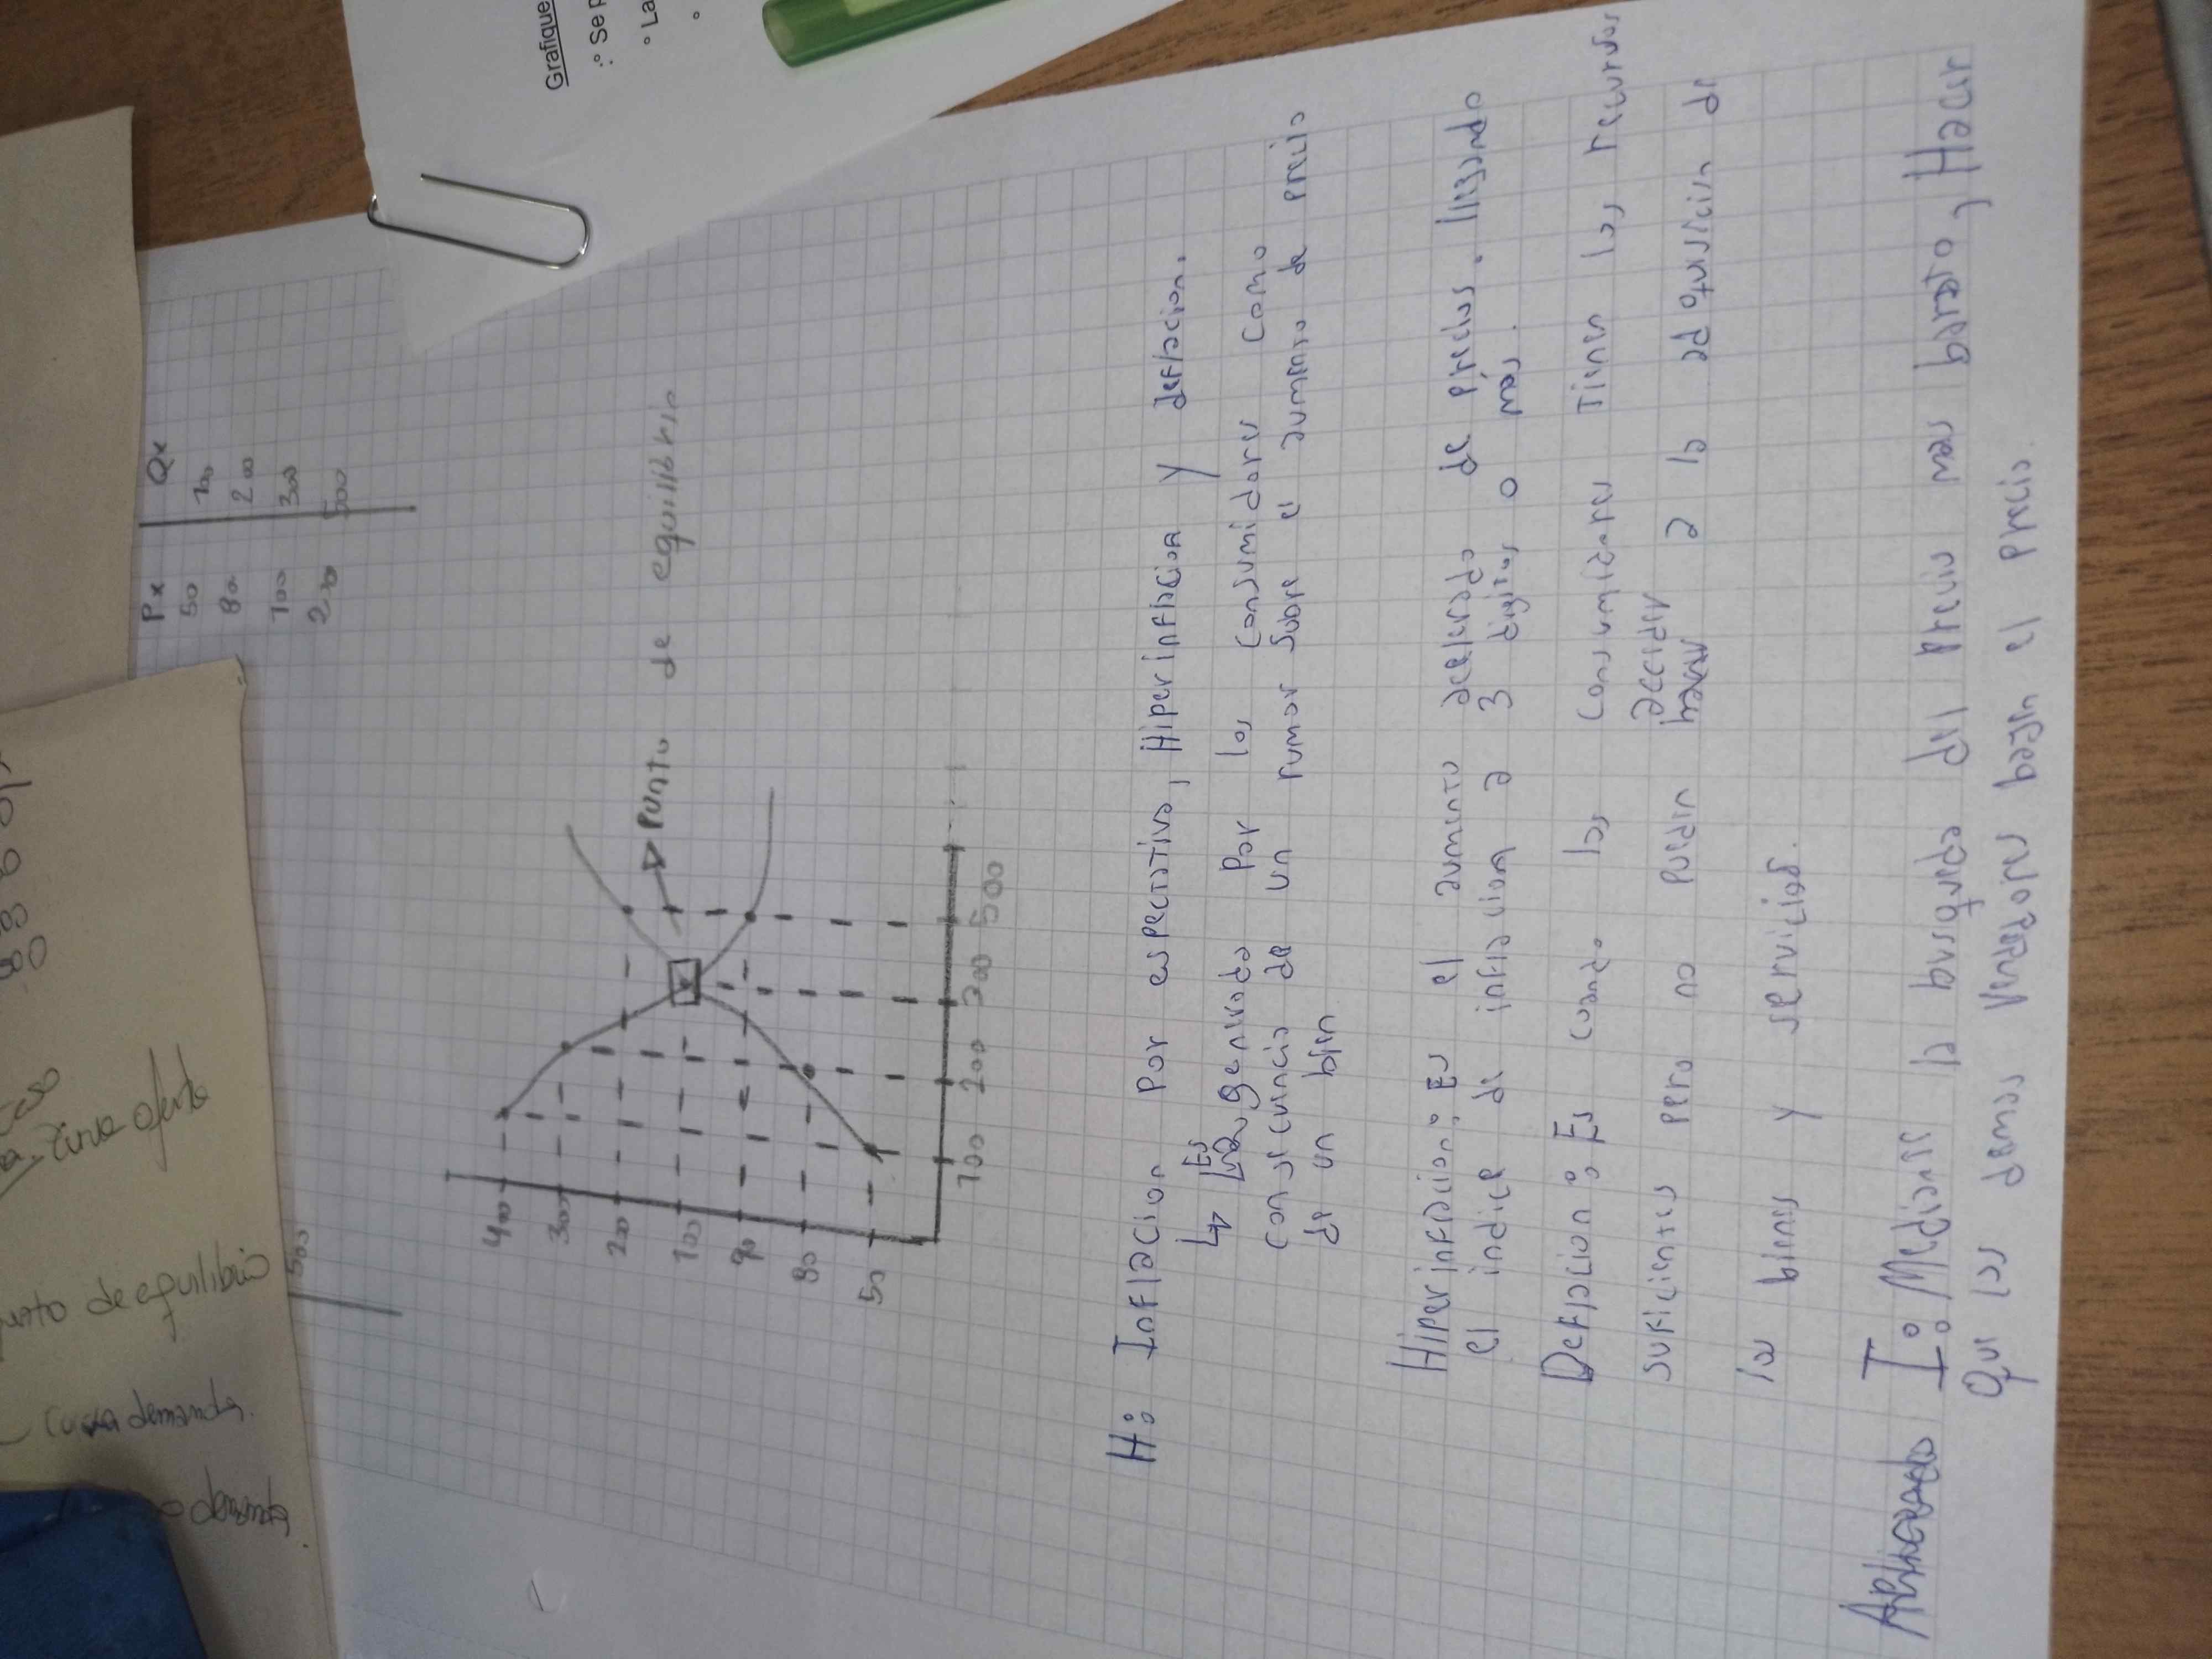 Grafique
∴ Se p
° La
Px Qx
50 100
80 200
100 300
200 500
Caso
Curva oferta
Punto de equilibrio
Curva demanda.
demanda
500
400
300
200
100
90
80
50
100 200 300 500
Punto de equilibrio
H: Inflacion Por espectativa, Hiperinflacion y deflacion.
↳ Es generado Por los consumidores como
consecuencia de un rumor sobre el aumento de precio
de un bien
Hiperinflacion: Es el aumento acelerado de precios. llegando
el indice de inflacion a 3 digitos o más.
Deflacion: Es cuando los consumidores Tienen los recursos
suficientes pero no pueden acceder a la adquisicion de
los bienes y servicios.
Apartado I: Medidas: el busque del precio mas barato, Hacer
Que los demas vendedores bajen el precio.